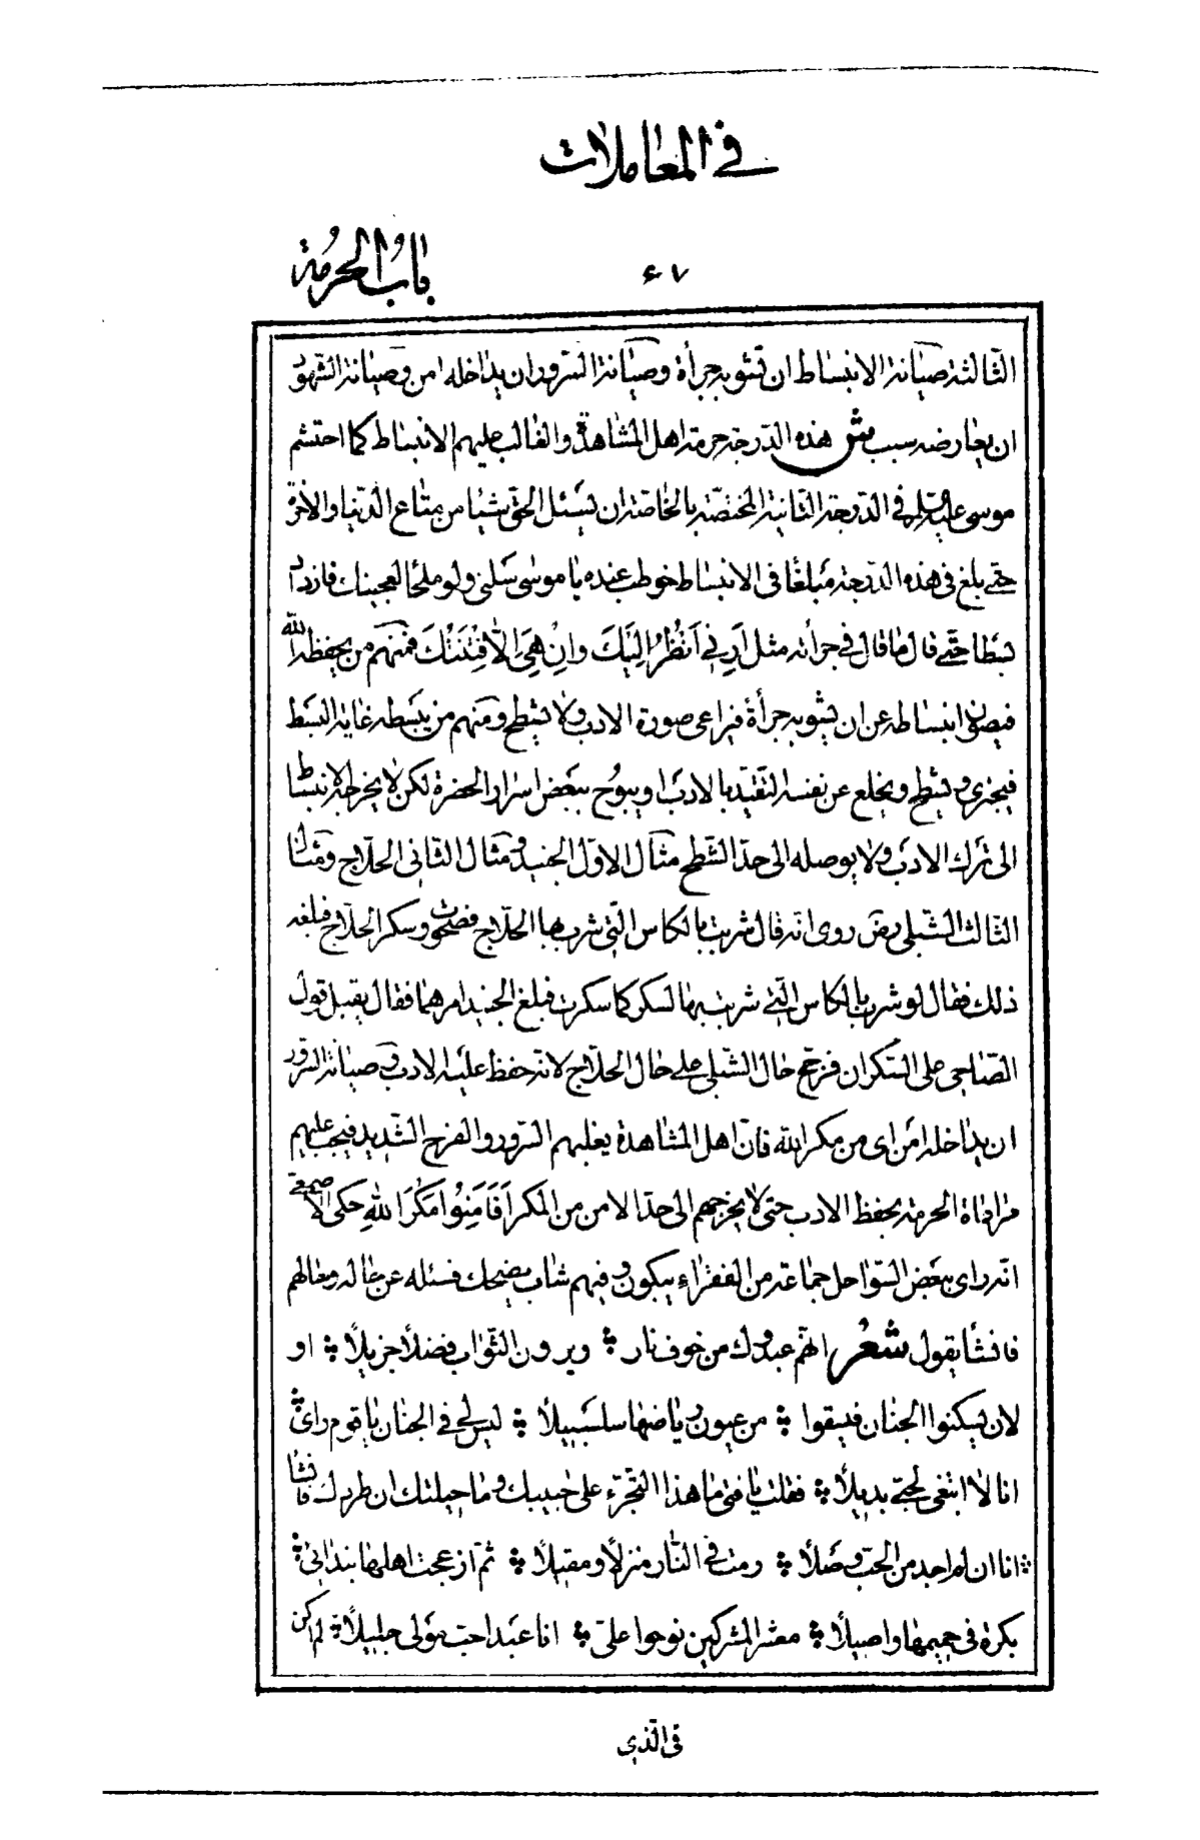 في المعاملات
باب الحرمة
٦٧
الثالثة صيانة الانبساط ان تشوبه جرأة وصيانة السرور ان يداخله امن وصيانة الشهود
ان يعارضه سبب ش هذه الدرجة حرمة اهل المشاهدة والغالب عليهم الانبساط كما احتشم
موسى عليه السلم في الدرجة الثانية المختصة بالخاصة ان يسئل الحق شيئا من متاع الدنيا والاخرة
حتى بلغ في هذه الدرجة مبلغا في الانبساط خوطب عنده يا موسى سلني ولو ملحا لعجينك فازداد
بسطا حتى قال ما قال في جرأته مثل ارني انظر اليك وان هي الا فتنتك فمنهم من يحفظه الله
فيصون انبساطه عن ان يشوبه جرأة فيراعى صورة الادب ولا يشطح ومنهم من يبسطه غاية البسط
فيجترى ويشطح ويخلع عن نفسه التقيد بالادب او يبوح ببعض اسرار الحضرة لكن لا يخرجه الانبساط
الى ترك الادب ولا يوصله الى حد الشطح مثال الاول الجنيد ومثال الثانى الحلاج ومثال
الثالث الشبلى رض روى انه قال شربت بالكاس التى شرب بها الحلاج فصحوت وسكر الحلاج فبلغه
ذلك فقال لو شرب بالكاس التى شربت بها لسكر كما سكرت فبلغ الجنيد امرهما فقال يقبل قول
الصاحى على السكران فرجح حال الشبلى على حال الحلاج لانه حفظ عليه الادب وصيانة السرور
ان يداخله امن اى من مكر الله فان اهل المشاهدة يغلبهم السرور والفرح الشديد فيجب عليهم
مراعاة الحرمة بحفظ الادب حتى لا يخرجهم الى حد الامن من المكر افامنوا مكر الله حكى الاصمعى
انه راى ببعض السواحل جماعة من الفقراء يبكون وفيهم شاب يضحك فسئله عن حاله وحالهم
فانشأ يقول شعر انهم عبدوك من خوف نار ؞ ويرون الثواب فضلا جزيلا ؞ او
لان يسكنوا الجنان فيسقوا ؞ من عيون رياضها سلسبيلا ؞ ليس لى في الجنان يا قوم راى ؞
انا لا ابتغى لحبى بديلا ؞ فقلت يا فتى ما هذا التجرء على حبيبك وما حيلتك ان طردك فانشأ
؞ انا ان لم اجد من الحب وصلا ؞ رمت في النار منزلا ومقيلا ؞ ثم ازعجت اهلها بندائى ؞
بكرة في جحيمها واصيلا ؞ معشر المشركين نوحوا على ؞ انا عبد احببت مولى جليلا ؞ لم اكن
فى الذى